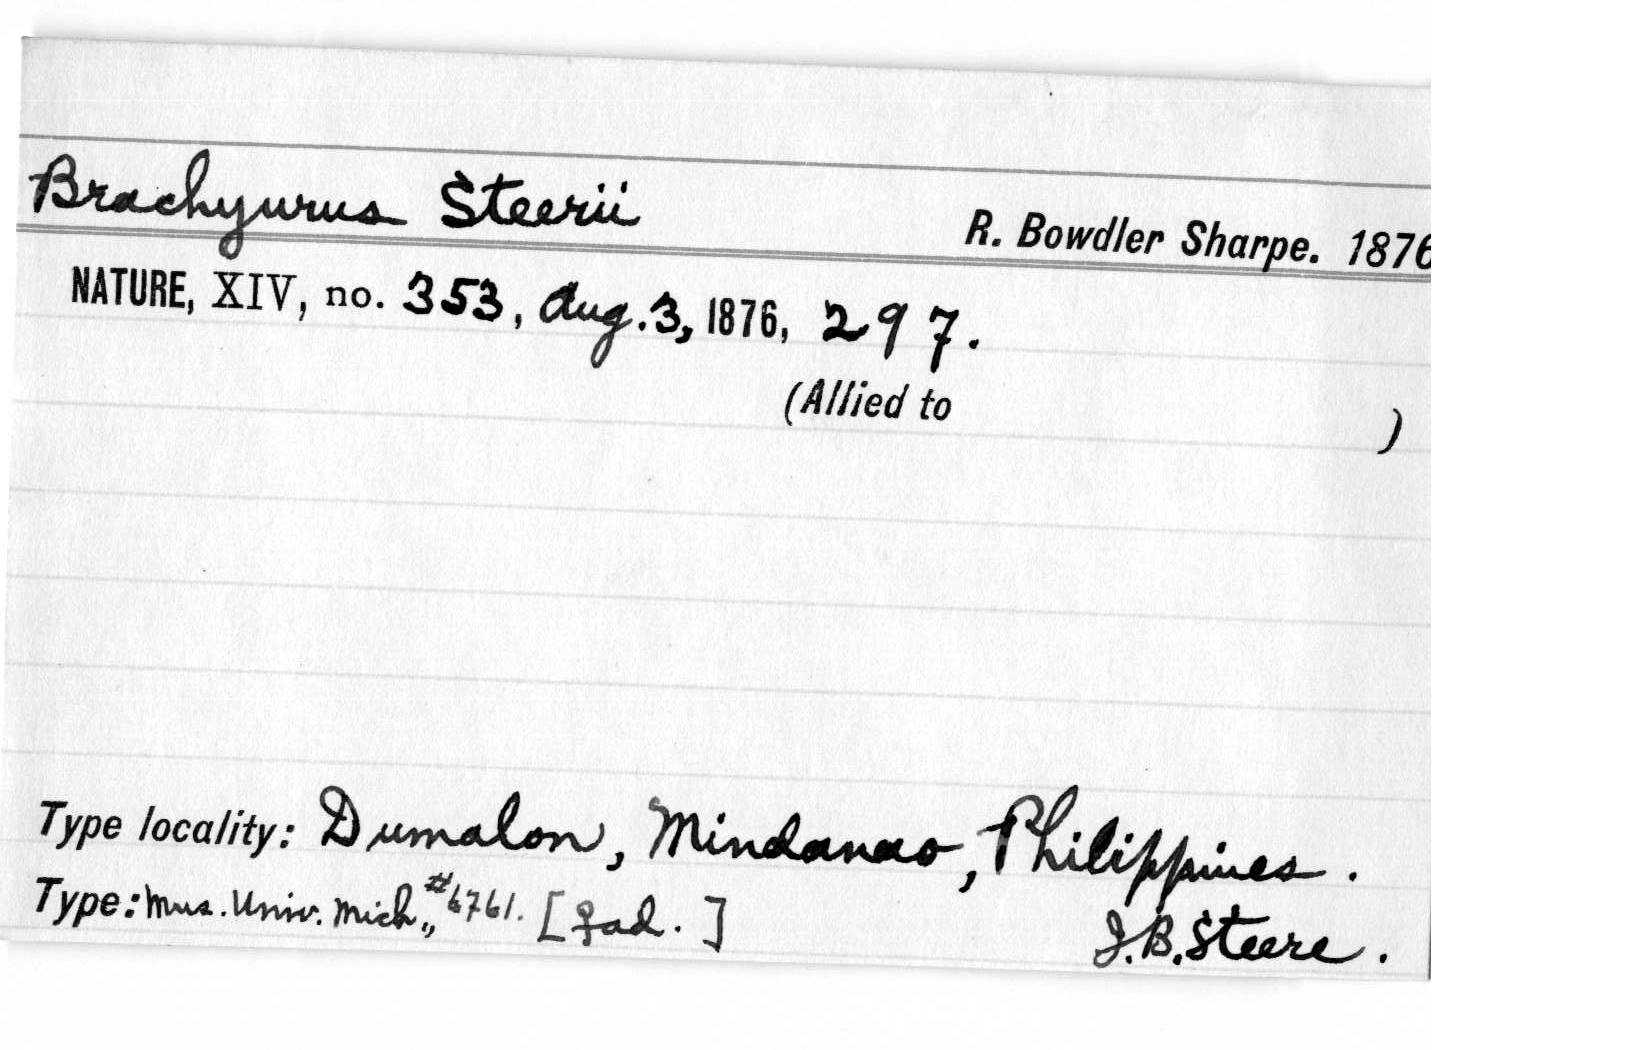 Brachyurus Steerii R. Bowdler Sharpe. 1876
NATURE, XIV, no. 353, Aug. 3, 1876, 297.
(Allied to )
Type locality: Dumalon, Mindanao, Philippines.
Type: Mus. Univ. Mich., #6761. [♀ad.] J.B. Steere.